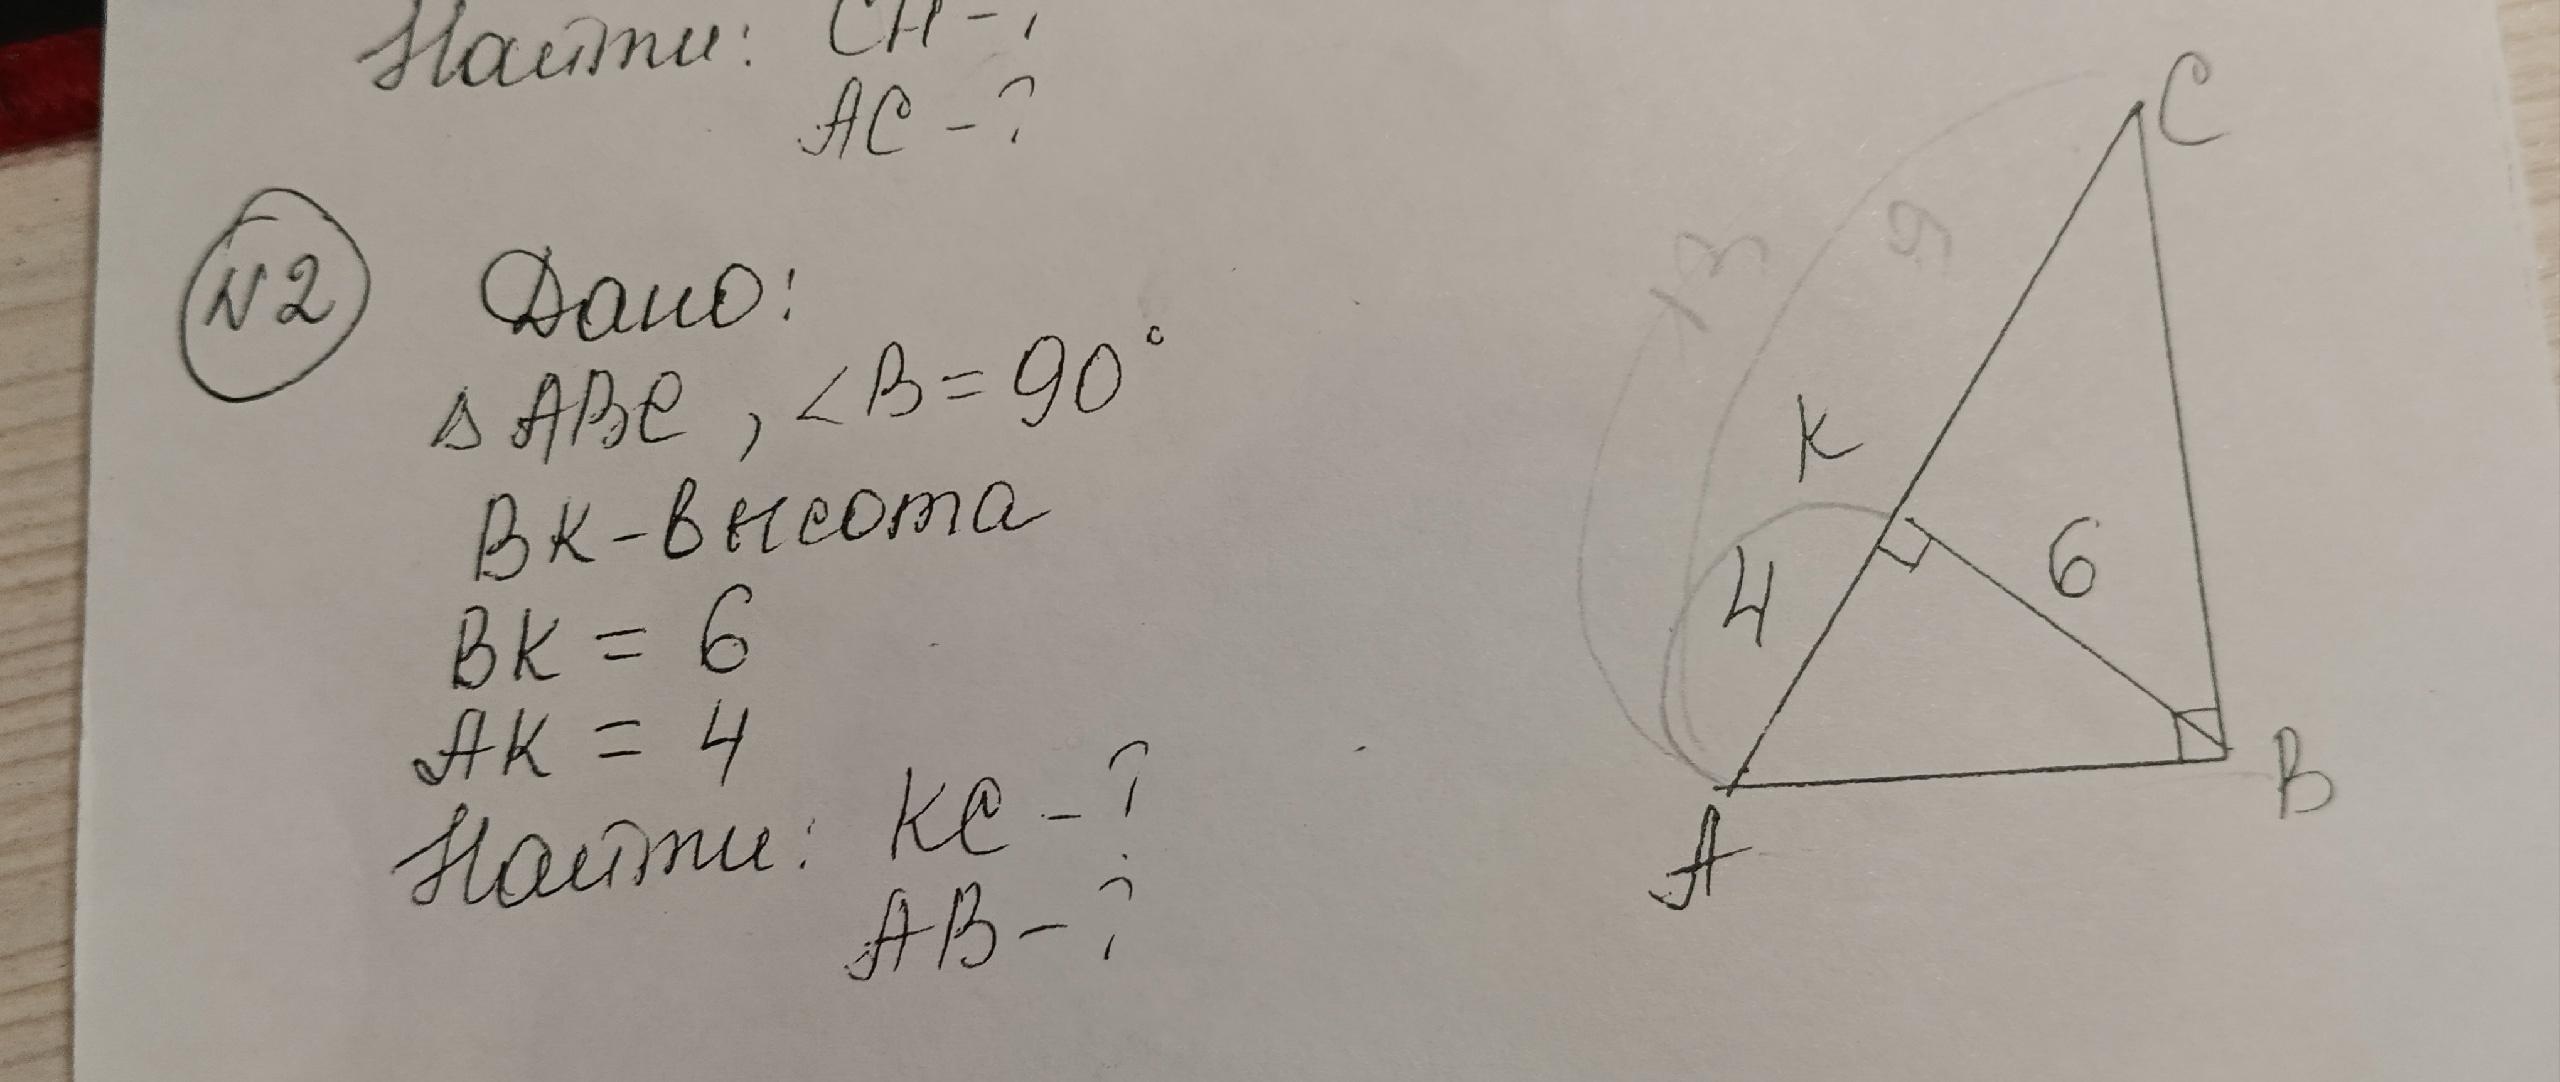 Найти: СН - ?
АС - ?
N2
Дано:
△ ABC, ∠B = 90°
BK - высота
BK = 6
AK = 4
Найти: KC - ?
AB - ?
C
13
9
K
4
6
B
A